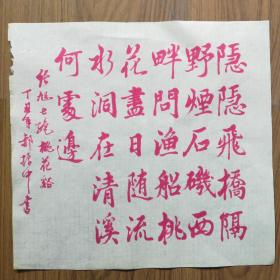 隐隐飛橋隔
野煙石磯西
畔問漁船桃
花盡日随流
水洞在清溪
何處邊
张旭之桃花谿
丁丑年郭振中書